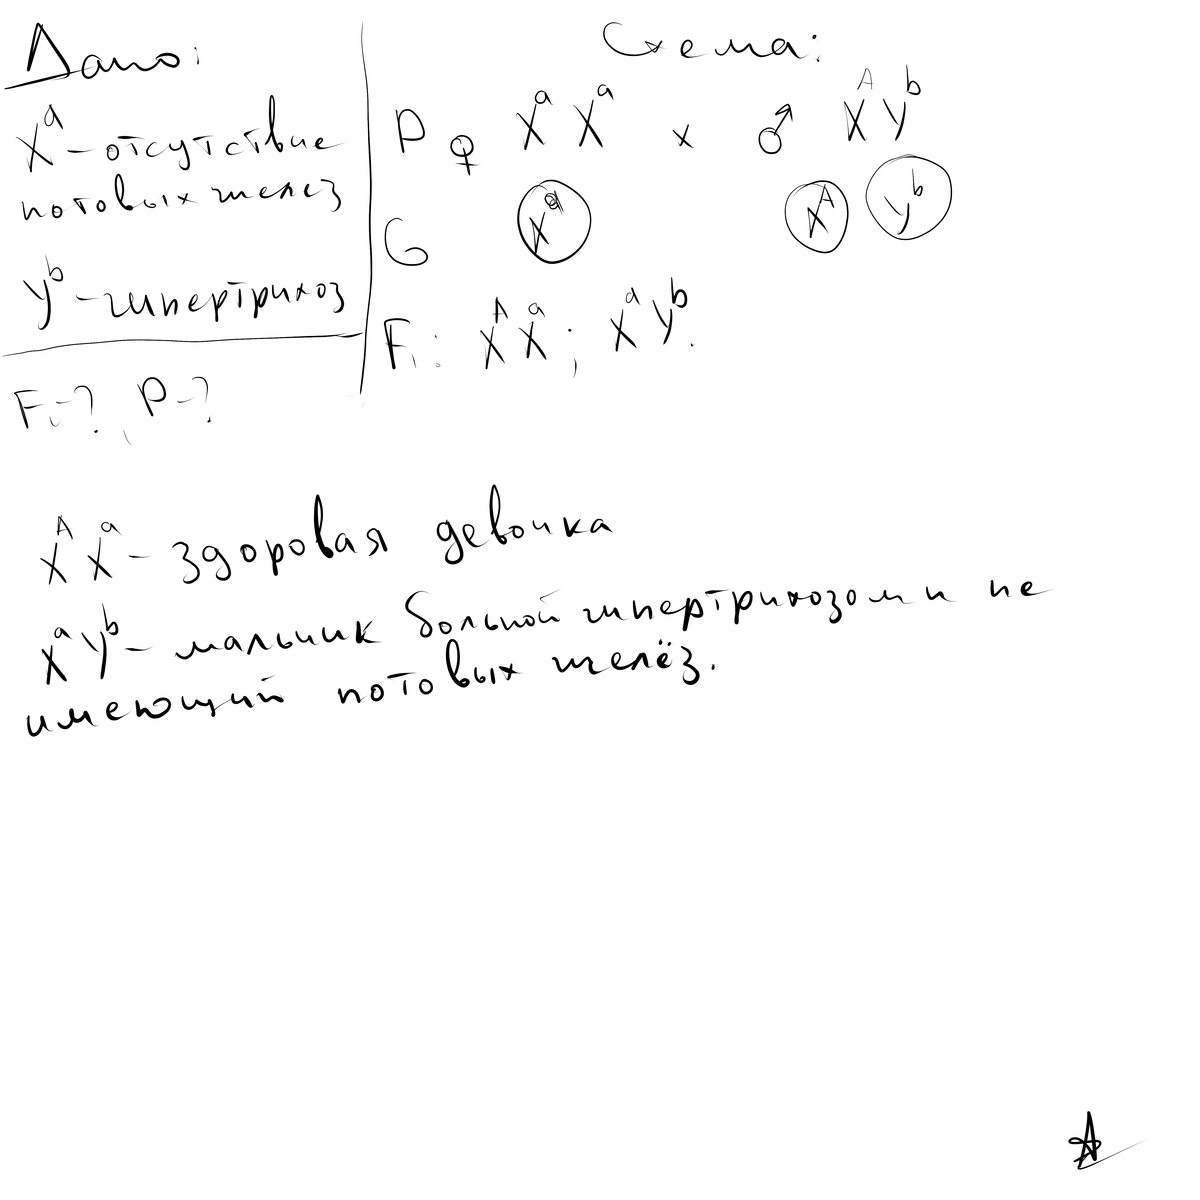 Дано:
X^a - отсутствие
потовых желез
y^b - гипертрихоз
F₁ - ?, P - ?
Схема:
P ♀ X^a X^a × ♂ X^A y^b
G X^a X^A y^b
F₁: X^A X^a; X^a y^b.
X^A X^a - здоровая девочка
X^a y^b - мальчик больной гипертрихозом и не
имеющий потовых желёз.